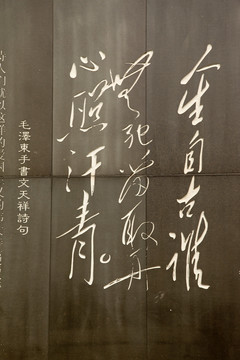 人生自古誰
無死留取丹
心照汗青。
毛澤東手書文天祥詩句